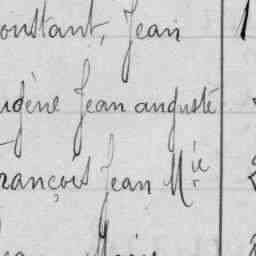 onstant, Jean 1
ugène Jean auguste
rançois Jean Mie